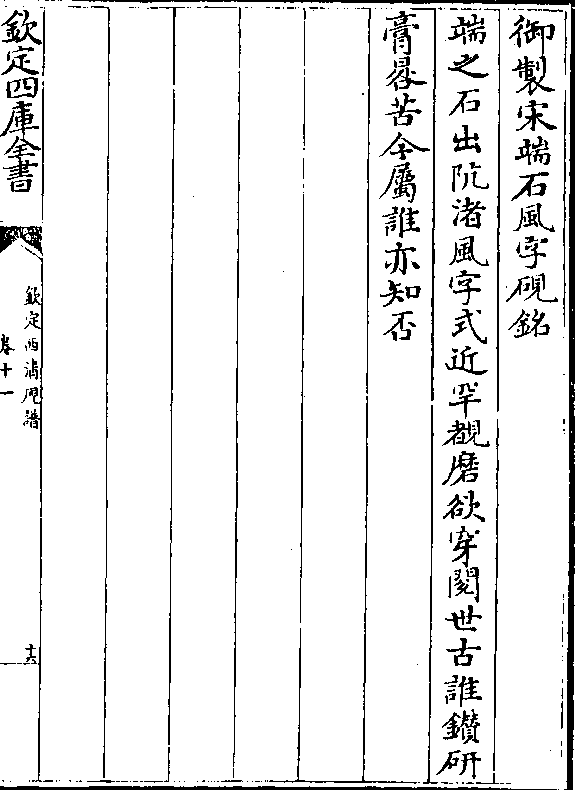 御製宋端石風字硯銘
端之石出阬渚風字式近罕覩磨欲穿閱世古誰鑽研
膏晷苦今屬誰亦知否
欽定四庫全書
欽定西清硯譜
卷十一
十六